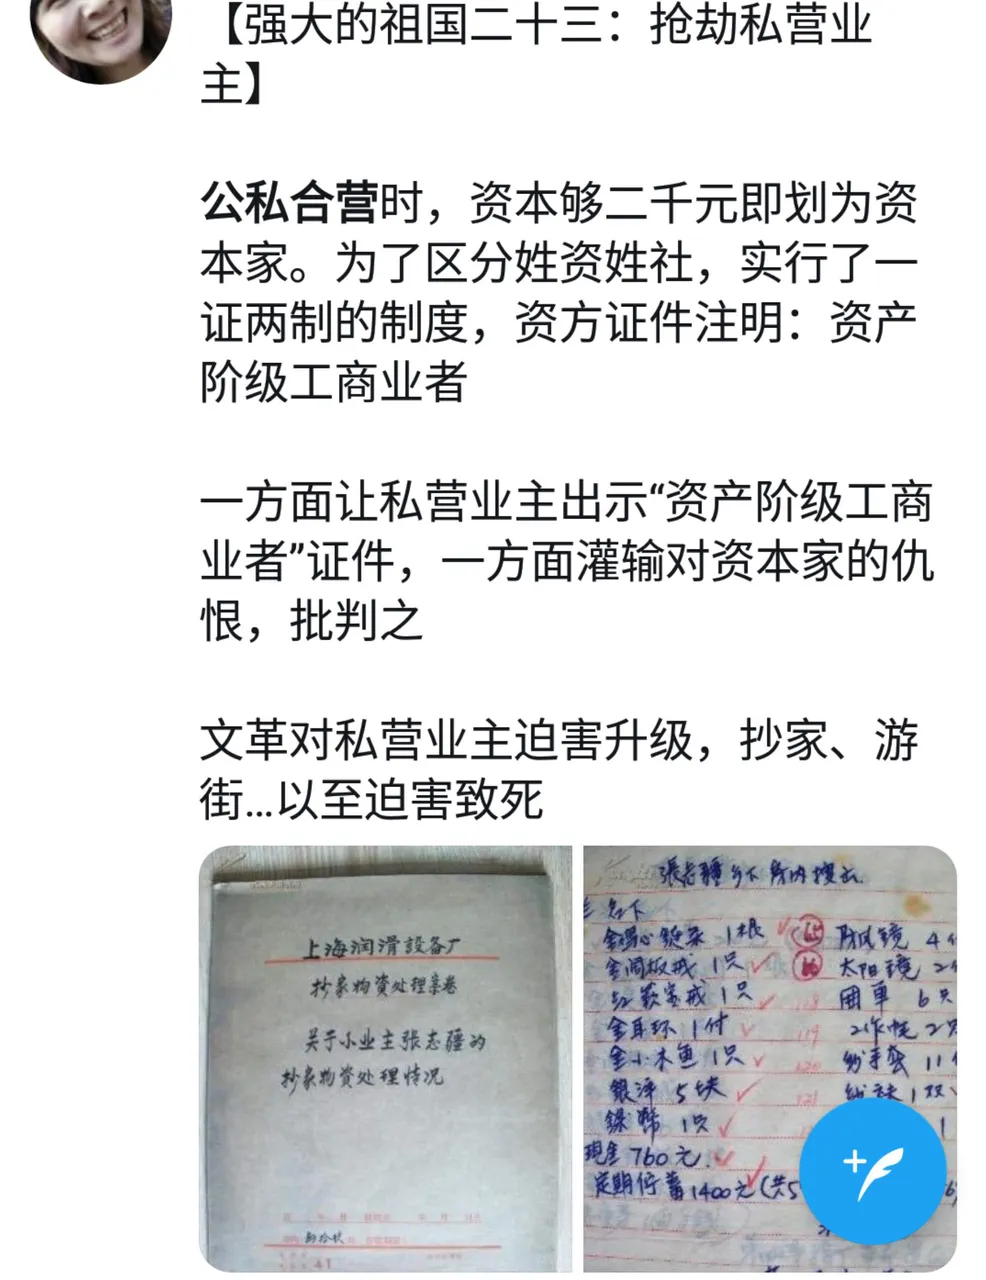 【强大的祖国二十三：抢劫私营业
主】
公私合营时，资本够二千元即划为资
本家。为了区分姓资姓社，实行了一
证两制的制度，资方证件注明：资产
阶级工商业者
一方面让私营业主出示“资产阶级工商
业者”证件，一方面灌输对资本家的仇
恨，批判之
文革对私营业主迫害升级，抄家、游
街...以至迫害致死
上海润滑設备厂
抄家物資处理案卷
关于小业主张志疆的
抄家物資处理情况
41
張志疆乡下房内搜出
名下
金雞心鏈条 1根
金闾板戒 1只
戒 1只
金耳环 1付
金小木鱼 1只
銀洋 5块
1只
現金 760元
定期储蓄1400元(共5
防风镜 4
太阳鏡 2
6只
工作帽 2只
纱手套 11
纱袜 1双
1